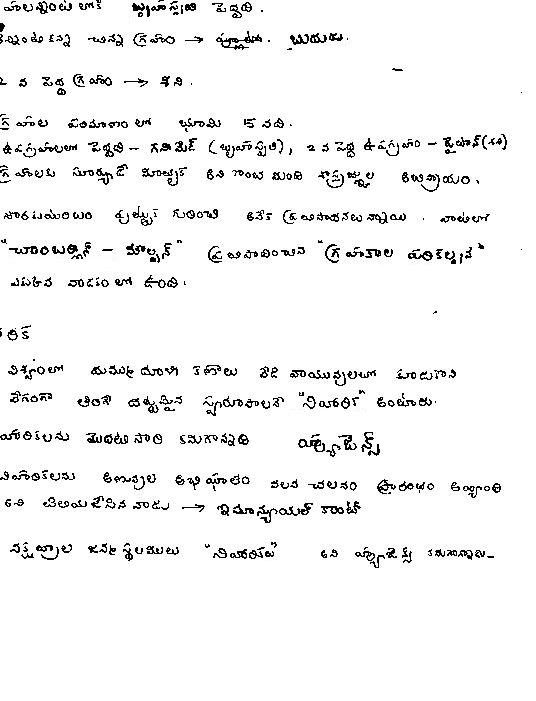 హలన్నింటి లోకి బృహస్పతి పెద్దది.
న్నింటికన్నా చిన్న గ్రహం → బుధుడు.
2 వ పెద్ద గ్రహం → శని.
గ్రహాల పరిమాణం లో భూమి 5 వది.
ఉపగ్రహాలలో పెద్దది - గనిమెడ్ (బృహస్పతి), 2 వ పెద్ద ఉపగ్రహం - టైటాన్ (శని)
గ్రహాలకు సూర్యుడే మాతృక అని కొంత మంది శాస్త్రజ్ఞుల అభిప్రాయం.
సౌరకుటుంబం పుట్టుక గురించి అనేక ప్రతిపాదనలున్నాయి. వాటిలో
"చాంబర్లిన్ - మౌల్టన్" ప్రతిపాదించిన "గ్రహకాల పరికల్పన"
ఎక్కువ వాడకం లో ఉంది.
రిక
విశ్వంలో దుమ్ము ధూళి కణాలు వేడి వాయువులతో కూడుకొని
వేగంగా తిరిగే దట్టమైన స్వరూపాలనే "నిహారిక" అంటారు.
హారికలను మొదటి సారి కనుగొన్నది హైగెన్స్
నిహారికలను అణువుల అభిఘాతం వలన చలనం ప్రారంభం అయ్యింది
అని తెలియజేసిన వాడు → ఇమాన్యుయల్ కాంట్
నక్షత్రాల జన్మస్థలములు "నిహారికలు" అని హైగెన్స్ కనుగొన్నాడు.